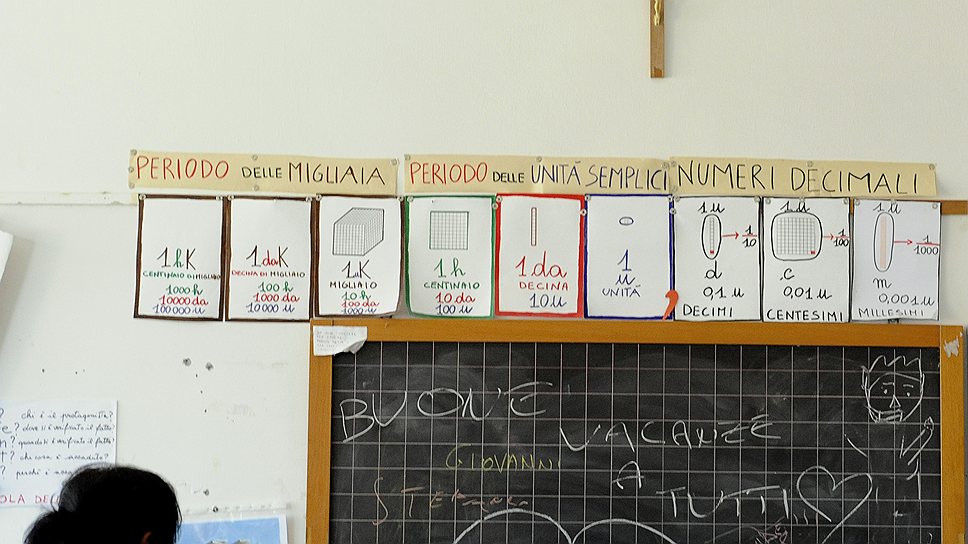 PERIODO DELLE MIGLIAIA
PERIODO DELLE UNITÀ SEMPLICI
NUMERI DECIMALI
1hK
CENTINAIO DI MIGLIAIO
1000 h
10000 da
100000 u
1daK
DECINA DI MIGLIAIO
100 h
1000 da
10000 u
1uK
MIGLIAIO
10 h
100 da
1000 u
1h
CENTINAIO
10 da
100 u
1da
DECINA
10 u
1
u
UNITÀ
,
1 u
1/10
d
0,1 u
DECIMI
1 u
1/100
c
0,01 u
CENTESIMI
1 u
1/1000
m
0,001 u
MILLESIMI
chi è il protagonista?
dove si è verificato il fatto?
quando si è verificato il fatto?
che cosa è accaduto?
perché è
BUONE
VACANZE
GIOVANNI
A
TUTTI!!!